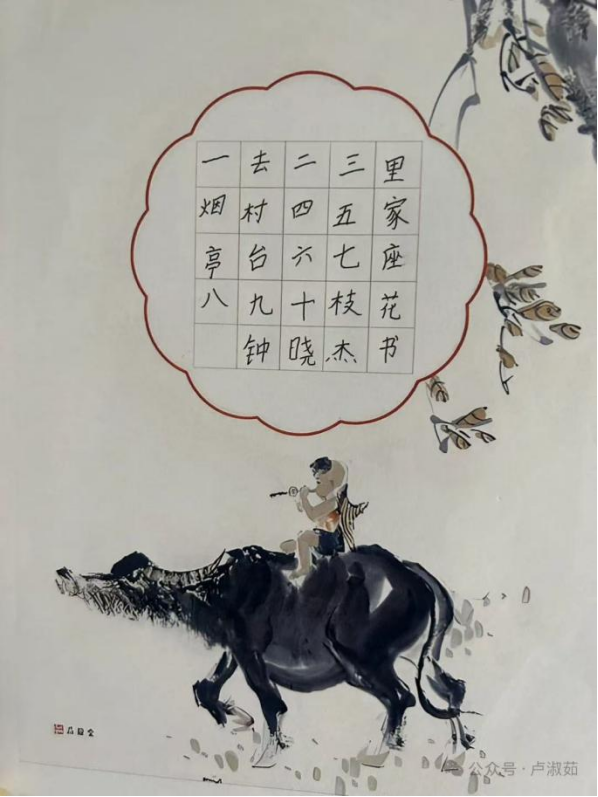 一去二三里
烟村四五家
亭台六七座
八九十枝花
钟晓杰书
公众号·卢淑茹